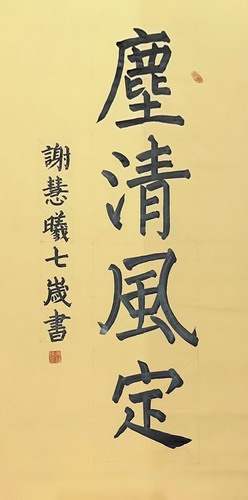 塵清風定
謝慧曦七歲書